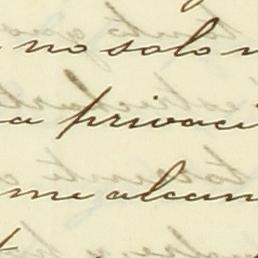 no solo
a privaci
me alcan